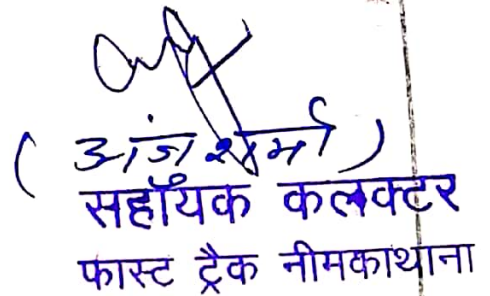 ( अंजू शर्मा )
सहायक कलक्टर
फास्ट ट्रैक नीमकाथाना